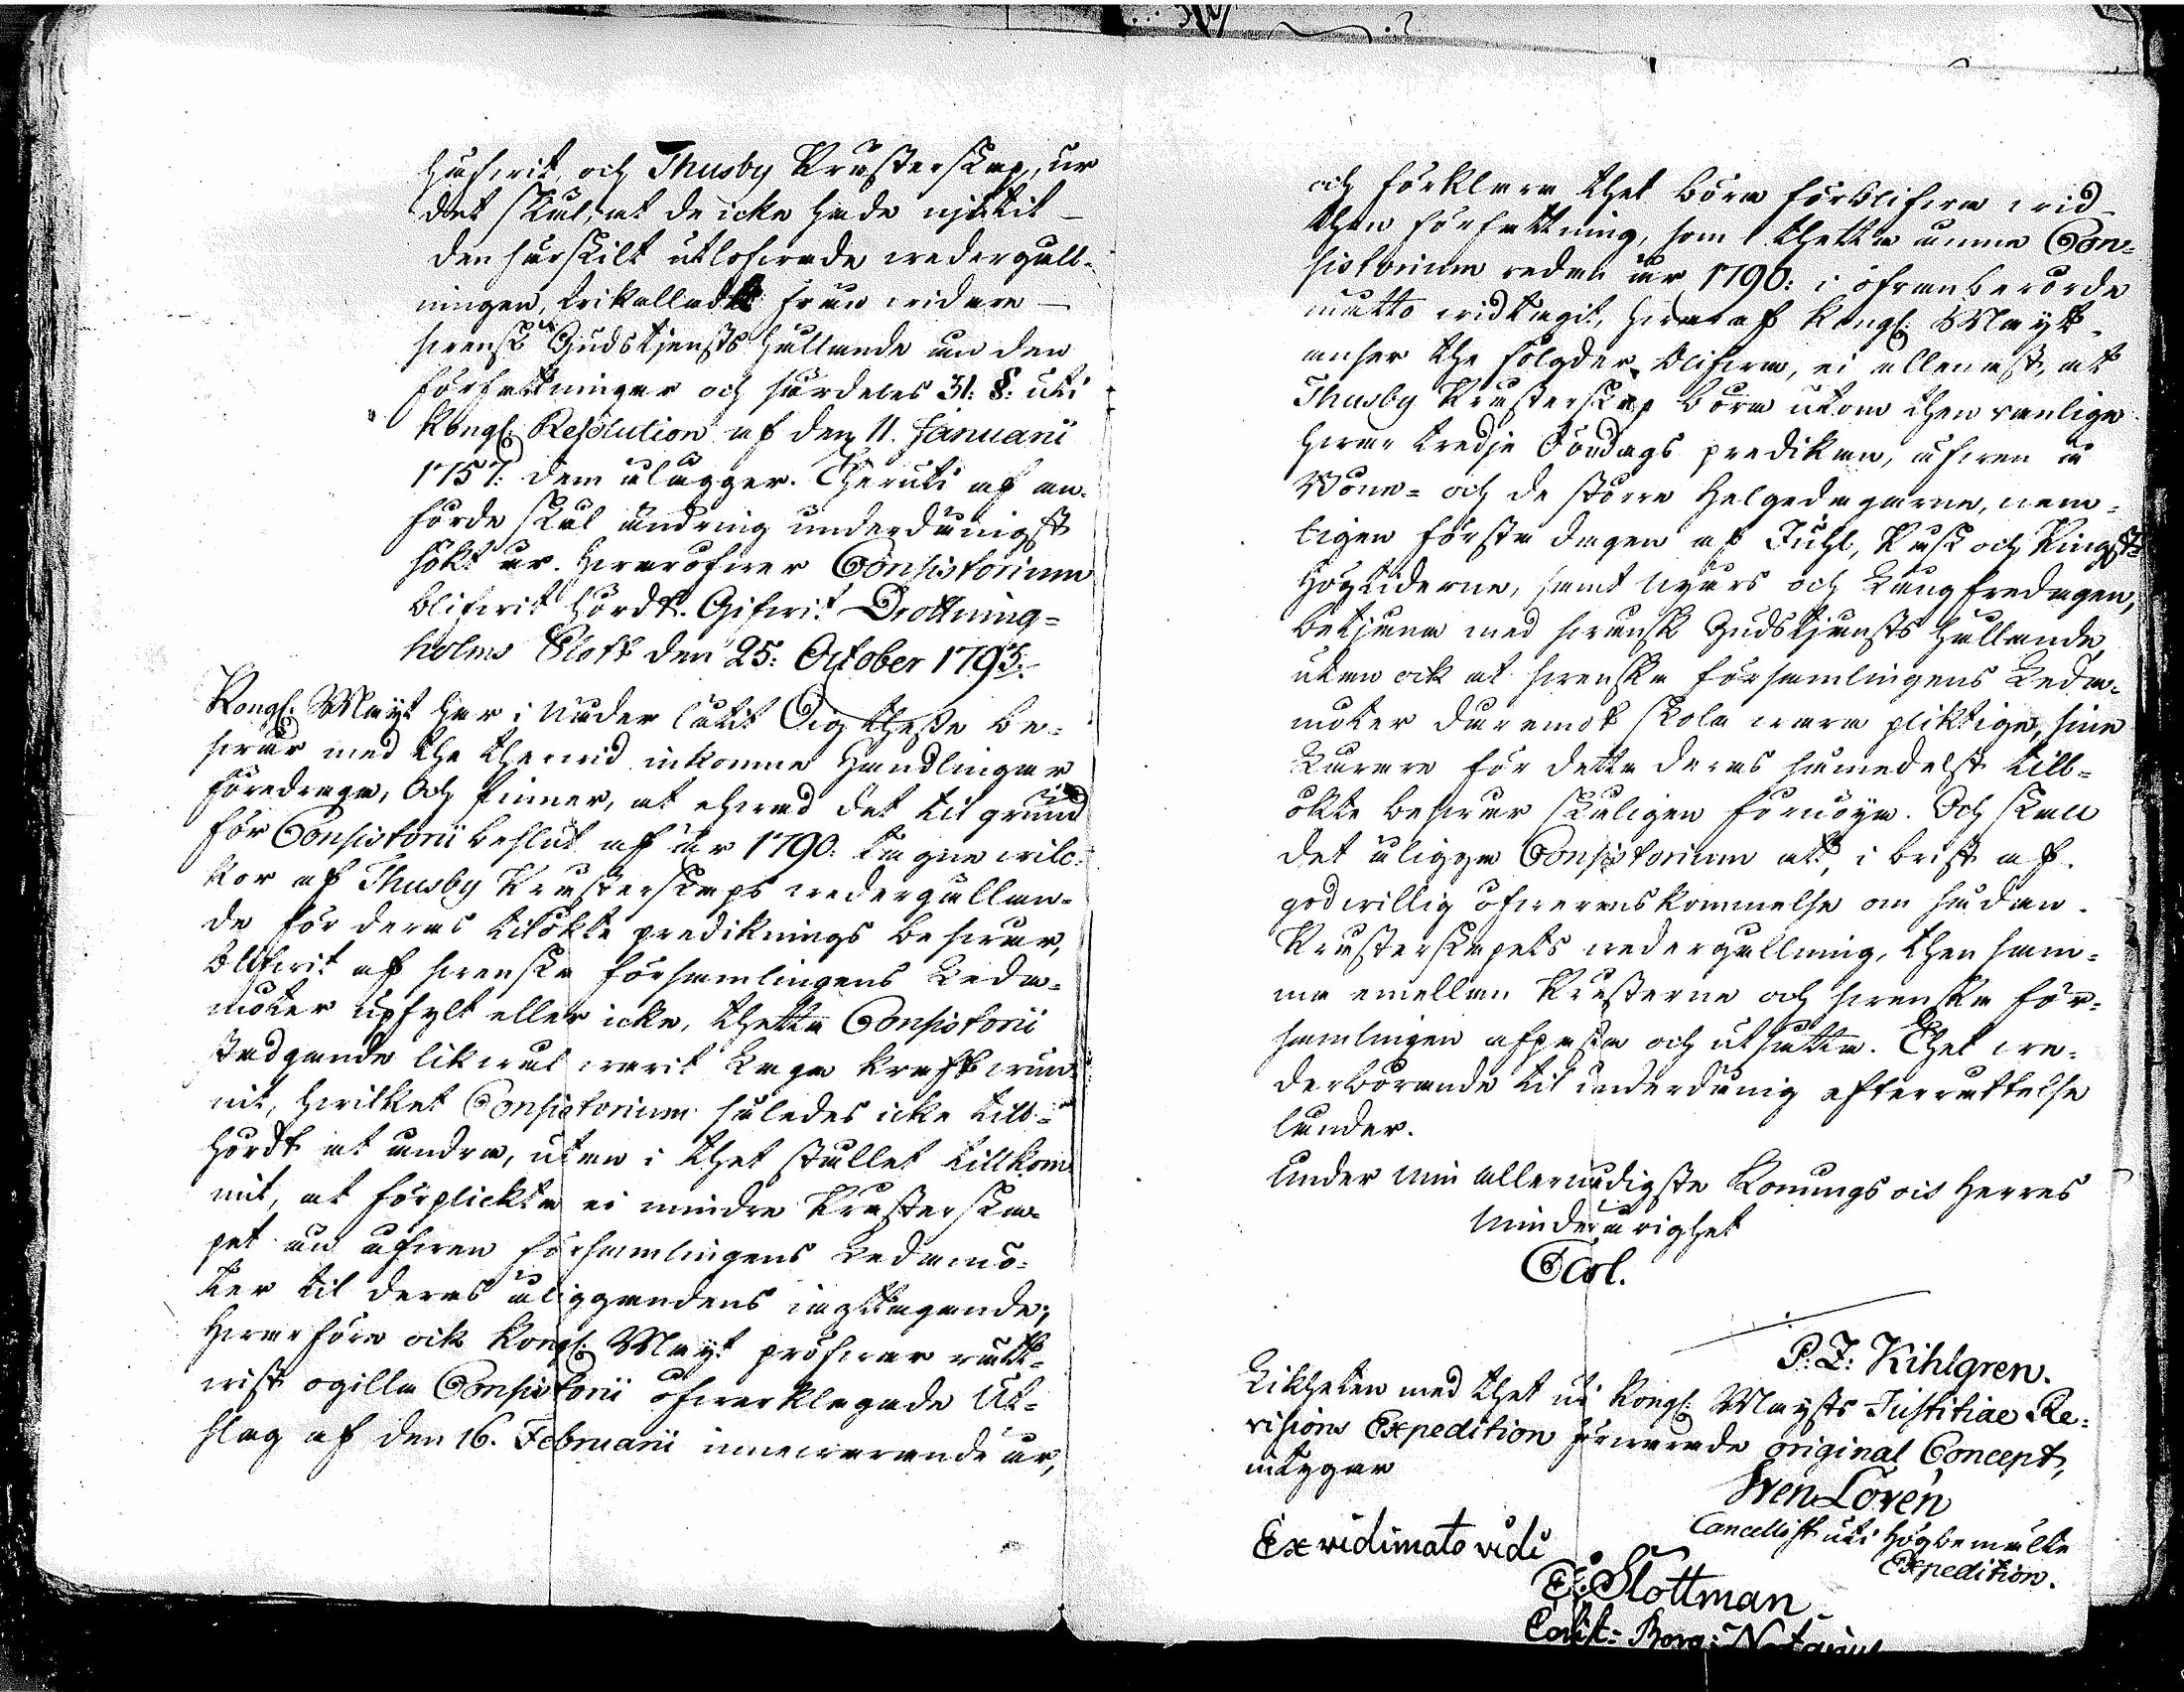 hafwit, och Thusby Presterskap, ur
det skäl, at de icke hade njutit
den särskilt utlofwade wedergäll-
ningen, frikalladt från widare
swensk Gudstjensts hållande än den
författningar och särdeles 31. §: uti
Kongl: Resolution af den 11. Januarii
1757: dem ålägger. Theruti af an-
förde skäl ändring underdånigst
sökt är. Hwaröfwer Consistorium
blifwit hördt. Gifwit Drottning=
holms Slott den 25: October 1793.
Kongl: Mayt har i Nåder låtit Sig thesse be-
swär med the therwid inkomne Handlingar
föredraga, Och finner, at ehwad det til grund
för Consistorii beslut af år 1790. tagne wilc-
kor af Thusby Presterskaps wedergällan-
de för deras tilökte prediknings beswär,
blifwit af swenska församlingens Leda-
möter upfylt eller icke, thetta Consistorii
stadgande likwäl warit Laga kraft wun-
nit, hwilket Consistorium således icke till-
hördt at ändra, utan i thet stället tillkom-
mit, at förplickta ej mindre Presterska-
pet än äfwen församlingens Ledamö-
ter til deras åliggandens iagttagande;
Hwarföre ock Kongl: Mayt pröfwar rätt-
wist ogilla Consistorii öfwerklagade Ut-
slag af den 16. Februarii innewarande år,
och förklara thet böra förblifwa wid
then författning, som i thetta ämne Con-
sistorium redan år 1790: i ofwanberörde
måtto widtagit, hwaraf Kongl: Mayt
anser the följder blifwa, ej allenast, at
Thusby Presterskap böra utom then wanliga
hwar tredje Söndags predikan, äfwen å
Böne- och de större Helgedagarne, nem-
ligen första dagen af Juhl, Påsk och Pingst-
Högtiderne, samt Nyårs och Långfredagen,
betjena med swensk Gudstjensts hållande,
utan ock at swenska församlingens Leda-
möter däremot skola wara pliktige, sine
Lärare för detta deras såmedelst till-
ökte beswär skäligen förnöya. Och skall
det åligga Consistorium att, i brist af
godwillig öfwerenskommelse om sådan
Presterskapets wedergällning, then sam-
ma emellan Presterne och swenska för-
samlingen afpassa och utsätta. Thet we-
derbörande til underdånig efterrättelse
länder.
Under Min allernådigste Konungs och Herres
Minderårighet
Carl.
P: Z: Kihlgren.
Likheten med thet uti Kongl: Mayts Justitiae Re-
visions Expedition förwarade original Concept,
intygar
Swen Lovén
Cancellist uti Högbemälte
Expedition.
Ex vidimato vidi
E: Slottman
Cons:t: Borg: Notarius